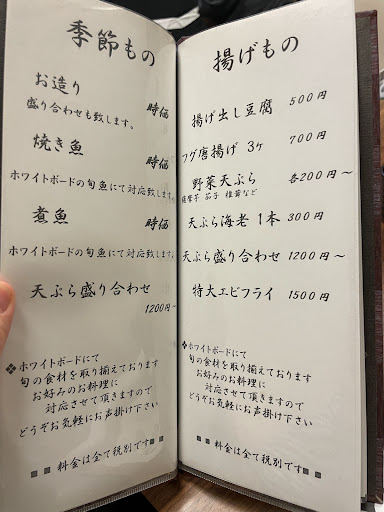 季節もの
お造り
盛り合わせも致します。 時価
焼き魚 時価
ホワイトボードの旬魚にて対応致します。
煮魚 時価
ホワイトボードの旬魚にて対応致します。
天ぷら盛り合わせ
1200円~
❖ホワイトボードにて
旬の食材を取り揃えております
お好みのお料理に
対応させて頂きますので
どうぞお気軽にお声掛け下さい
料金は全て税別です
揚げもの
揚げ出し豆腐 500円
フグ唐揚げ 3ケ 700円
野菜天ぷら 各200円~
薩摩芋 茄子 椎茸など
天ぷら海老 1本 300円
天ぷら盛り合わせ 1200円~
特大エビフライ 1500円
❖ホワイトボードにて
旬の食材を取り揃えております
お好みのお料理に
対応させて頂きますので
どうぞお気軽にお声掛け下さい
料金は全て税別です